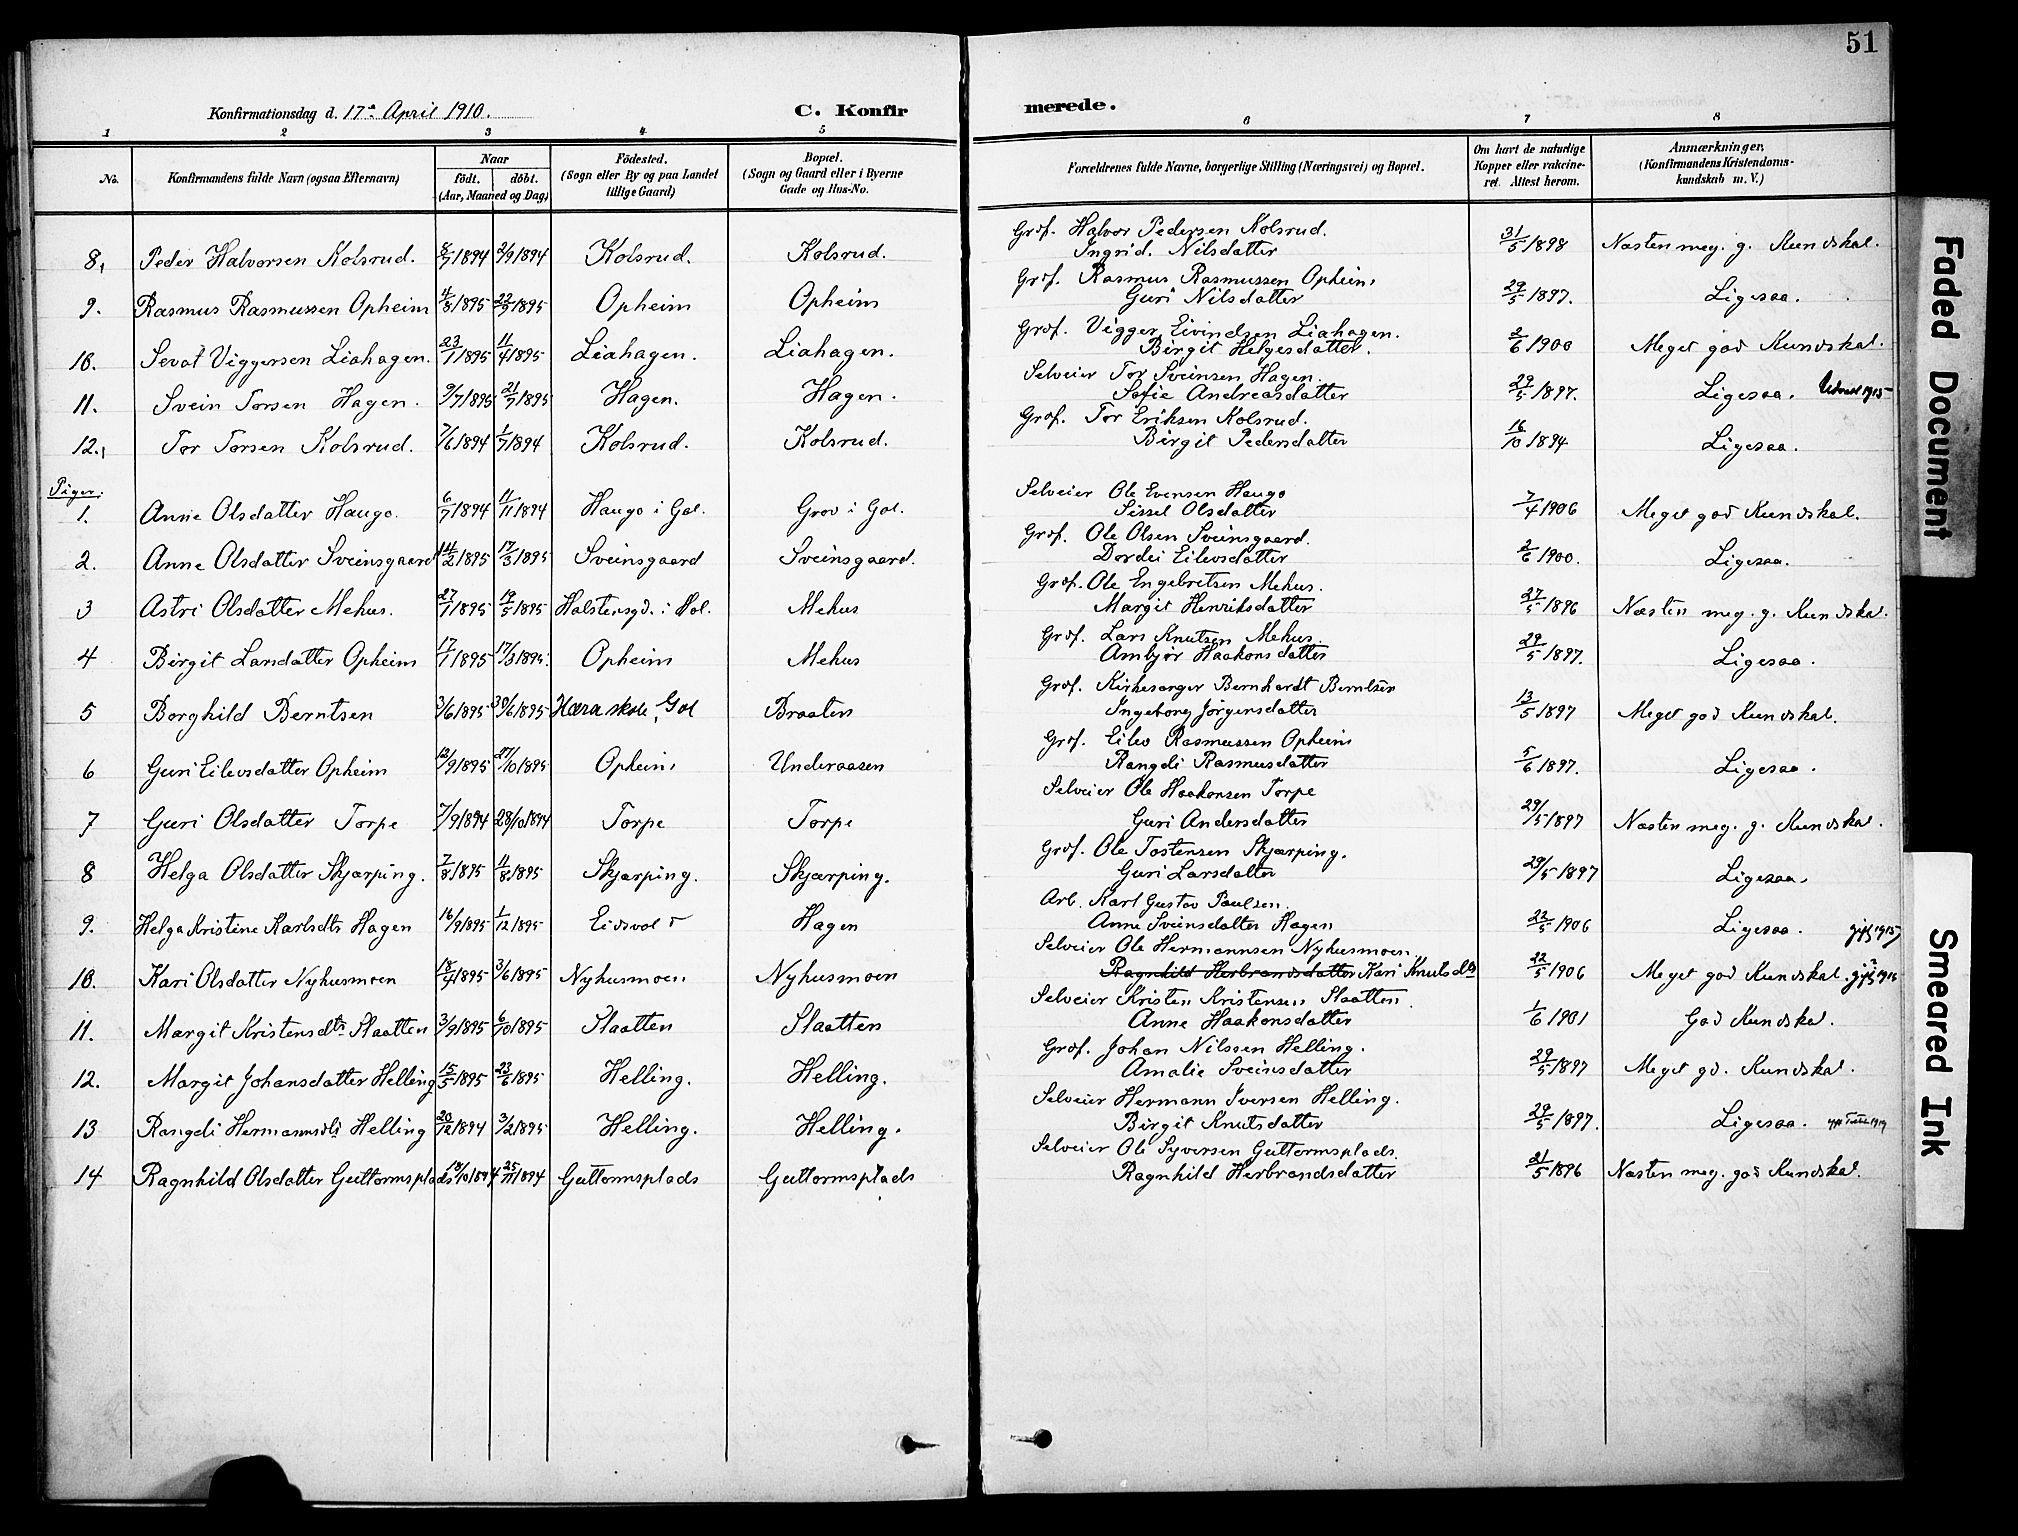 51
Konfirmationsdag d. 17de April 1910.
C. Konfir merede.
1 2 3 4 5 6 7 8
No. Konfirmandens fulde Navn (ogsaa Efternavn) Naar födt. döbt. (Aar, Maaned og Dag) Födested. (Sogn eller By og paa Landet tillige Gaard) Bopæl. (Sogn og Gaard eller i Byerne Gade og Hus-No. Forældrenes fulde Navne, borgerlige Stilling (Næringsvei) og Bopæl. Om havt de naturlige Kopper eller vakcineret. Attest herom. Anmærkninger. (Konfirmandens Kristendomskundskab m. V.)
8, Peder Halvorsen Kolsrud. 8/7 1894 2/9 1894 Kolsrud. Kolsrud. Grbf. Halvor Pedersen Kolsrud. Ingrid. Nilsdatter 31/5 1898 Næsten meg. g. Kundskab.
9. Rasmus Rasmussen Opheim 4/8 1895 22/9 1895 Opheim Opheim Grbf. Rasmus Rasmussen Opheim Guri Nilsdatter 29/5 1897. Ligesaa.
10. Sevat Viggersen Liahagen. 23/1 1895 11/4 1895 Liahagen. Liahagen. Grbf. Vigger Eivindsen Liahagen. Birgit Helgesdatter. 2/6 1900 Meget god Kundskab.
11. Svein Torsen Hagen. 9/7 1895 21/7 1895 Hagen. Hagen. Selveier Tor Sveinsen Hagen. Sofie Andreasdatter 29/5 1897. Ligesaa. 1915
12. Tor Torsen Kolsrud. 7/6 1894 1/7 1894 Kolsrud. Kolsrud. Grbf. Tor Eriksen Kolsrud. Birgit Pedersdatter 16/10 1894 Ligesaa.
Piger:
1. Anne Olsdatter Haugo. 6/7 1894 11/11 1894 Haugo i Gol. Grov i Gol. Selveier Ole Evensen Haugo Sissel Olsdatter 7/4 1906 Meget god Kundskab.
2. Anne Olsdatter Sveinsgaard 14/2 1895 17/3 1895 Sveinsgaard Sveinsgaard. Grbf. Ole Olsen Sveinsgaard. Dordei Eilevsdatter 2/6 1900. Ligesaa.
3 Astri Olsdatter Mehus. 27/1 1895 19/5 1895 Halstensgd. i Hol. Mehus Grbf. Ole Engebretsen Mehus. Margit Henriksdatter 27/5 1896 Næsten meg. g. Kundskab.
4 Birgit Larsdatter Opheim 17/1 1895 17/3 1895. Opheim Mehus Grbf. Lars Knutsen Mehus. Ambjør Haakonsdatter 29/5 1897. Ligesaa.
5 Borghild Berntsen 3/6 1895 30/6 1895 Hæra skole, Gol Braaten Grbf. Kirkesanger Bernhardt Berntsen Ingeborg Jörgensdatter 13/5 1897 Meget god Kundskab.
6 Guri Eilevsdatter Opheim 12/9 1895 27/10 1895 Opheim Underaasen Grbf. Eilev Rasmussen Opheim Rangdi Rasmusdatter 5/6 1897. Ligesaa.
7 Guri Olsdatter Torpe 7/9 1894 28/10 1894 Torpe Torpe Selveier Ole Haakonsen Torpe Guri Andersdatter 29/5 1897 Næsten meg. g. Kundskab.
8 Helga Olsdatter Skjærping. 7/8 1895 11/8 1895 Skjærping. Skjærping. Grbf. Ole Tostensen Skjærping. Guri Larsdatter 29/5 1897 Ligesaa.
9. Helga Kristine Karlsdtr Hagen 16/9 1895 1/12 1895 Eidsvold Hagen Arb. Karl Gustav Paulsen. Anne Sveinsdatter Hagen 22/5 1906 Ligesaa. gift 1915
10. Kari Olsdatter Nyhusmoen 18/4 1895 3/6 1895 Nyhusmoen Nyhusmoen Selveier Ole Hermannsen Nyhusmoen. Ragnhild Herbrandsdatter Kari Knutsdtr 22/5 1906 Meget god Kundskab. gift 1915
11. Margit Kristensdtr Slaatten 3/9 1895 6/10 1895 Slaatten Slaatten Selveier Kristen Kristensen Slaatten. Anne Haakonsdatter 1/6 1901 God Kundskab.
12. Margit Johansdatter Helling 15/5 1895 23/6 1895 Helling. Helling. Grbf. Johan Nilssen Helling. Amalie Sveinsdatter 29/5 1897 Meget gd. Kundskab.
13 Rangdi Hermannsdtr Helling 20/12 1894 3/2 1895 Helling. Helling. Selveier Hermann Iversen Helling. Birgit Knutsdatter 29/5 1897. Ligesaa.
14 Ragnhild Olsdatter Guttormsplads 13/10 1894 25/11 1894 Guttormsplads Guttormsplads Selveier Ole Syversen Guttormsplads. Ragnhild Herbrandsdatter 21/5 1896 Næsten meg. god Kundskab.
Faded Document
Smeared Ink